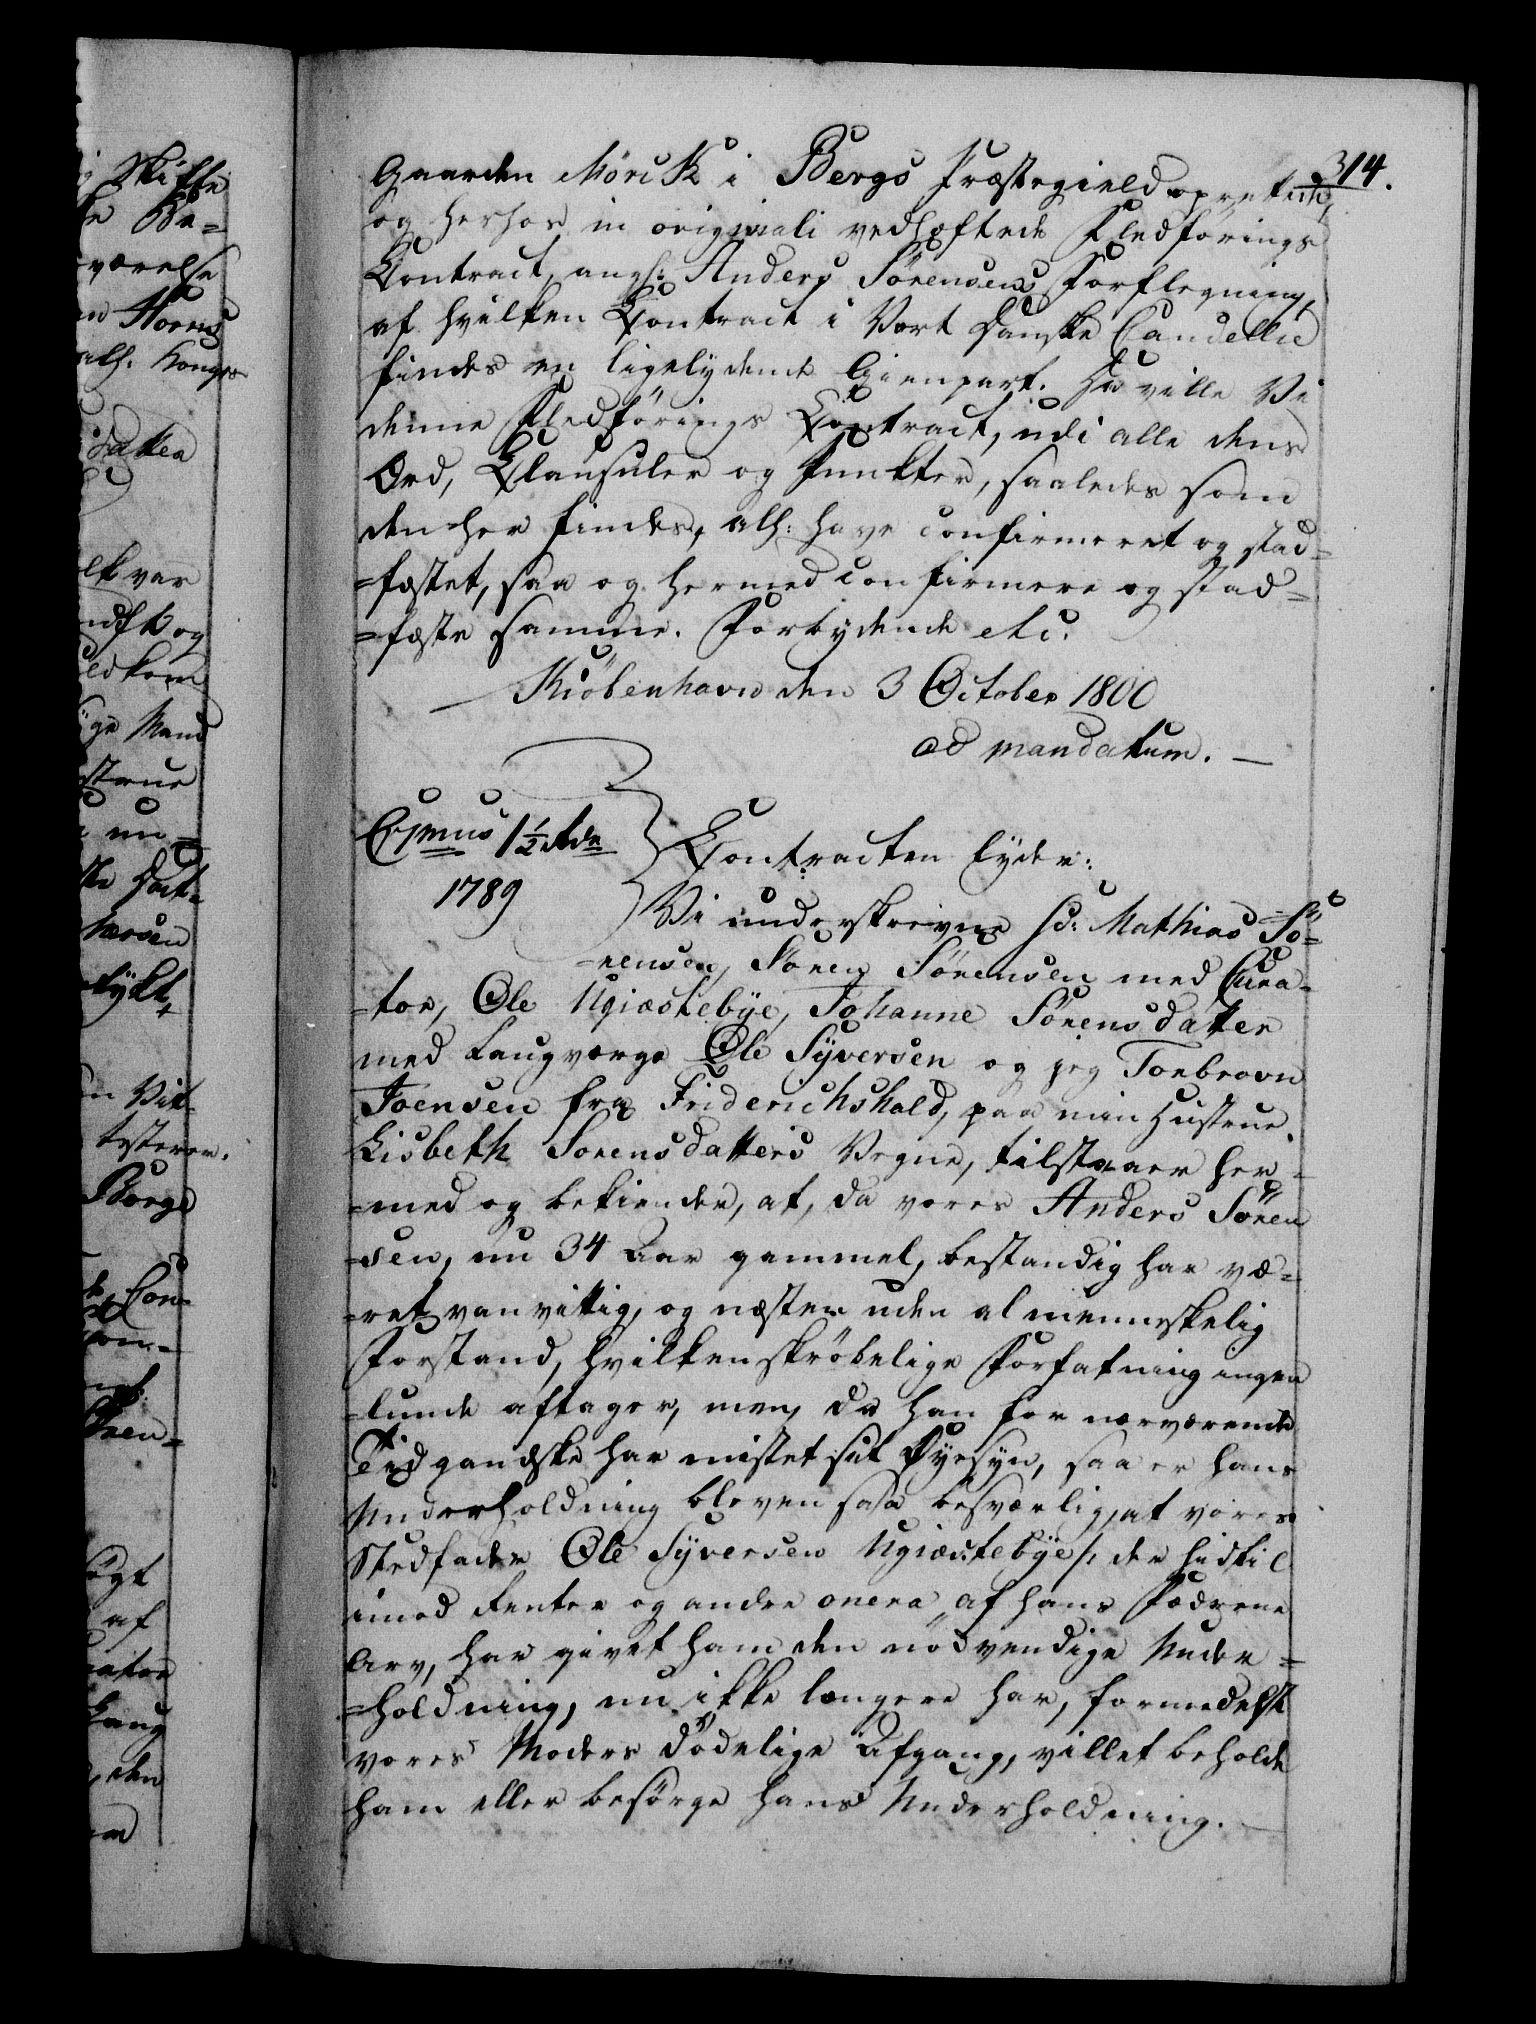 314.
Gaarden Mörck i Bergs Præstegield oprettede,
og herhos in originali vedhæftede Fledförings
Contract, angl: Anders Sörensens Forflegning,
af hvilken Contract i Vort Danske Cancellie
findes en ligelydende Gienpart. Da ville Vi
denne Fledförings Contract, udi alle dens
Ord, Clausuler og Punkter, saaledes som
den her findes, alh: have confirmeret og stad-
-fæstet, saa og hermed confirmere og stad-
-fæste samme. Forbydende etc.
Kiöbenhavn den 3 October 1800
ad mandatum.
1½
1789
Contracten lyder:
Vi underskrevne Sr: Mathias Sö-
-rensen, Sören Sörensen med Cura-
-tor, Ole Ugiæstebye, Johanne Sörensdatter
med Laugværge Ole Syversen og jeg Torbroun
Joensen fra Friderichshald, paa min Hustrue
Lisbeth Sorensdatters Vegne, tilstaaer her-
-med og bekiender, at, da vores Anders Sören
-sen, nu 34 Aar gammel, bestandig har væ-
-ret vanvittig, og næsten uden al menneskelig
Forstand, hvilken skröbelige Forfatning ingen
-lunde aftager, men, da han for nærværende
Tid gandske har mistet sit Øyesyn, saa er hans
Underholdning bleven saa besværlig, at vores
Stedfader Ole Syversen Ugiæstebye /: der hidtil
imod Renter og andre onera, af hans Fædrene
Arv, har givet ham den nödvendige Under-
-holdning, nu ikke længere har, formedelst
vores Moders dödelige Afgang, villet beholde
ham eller besörge hans Underholdning.